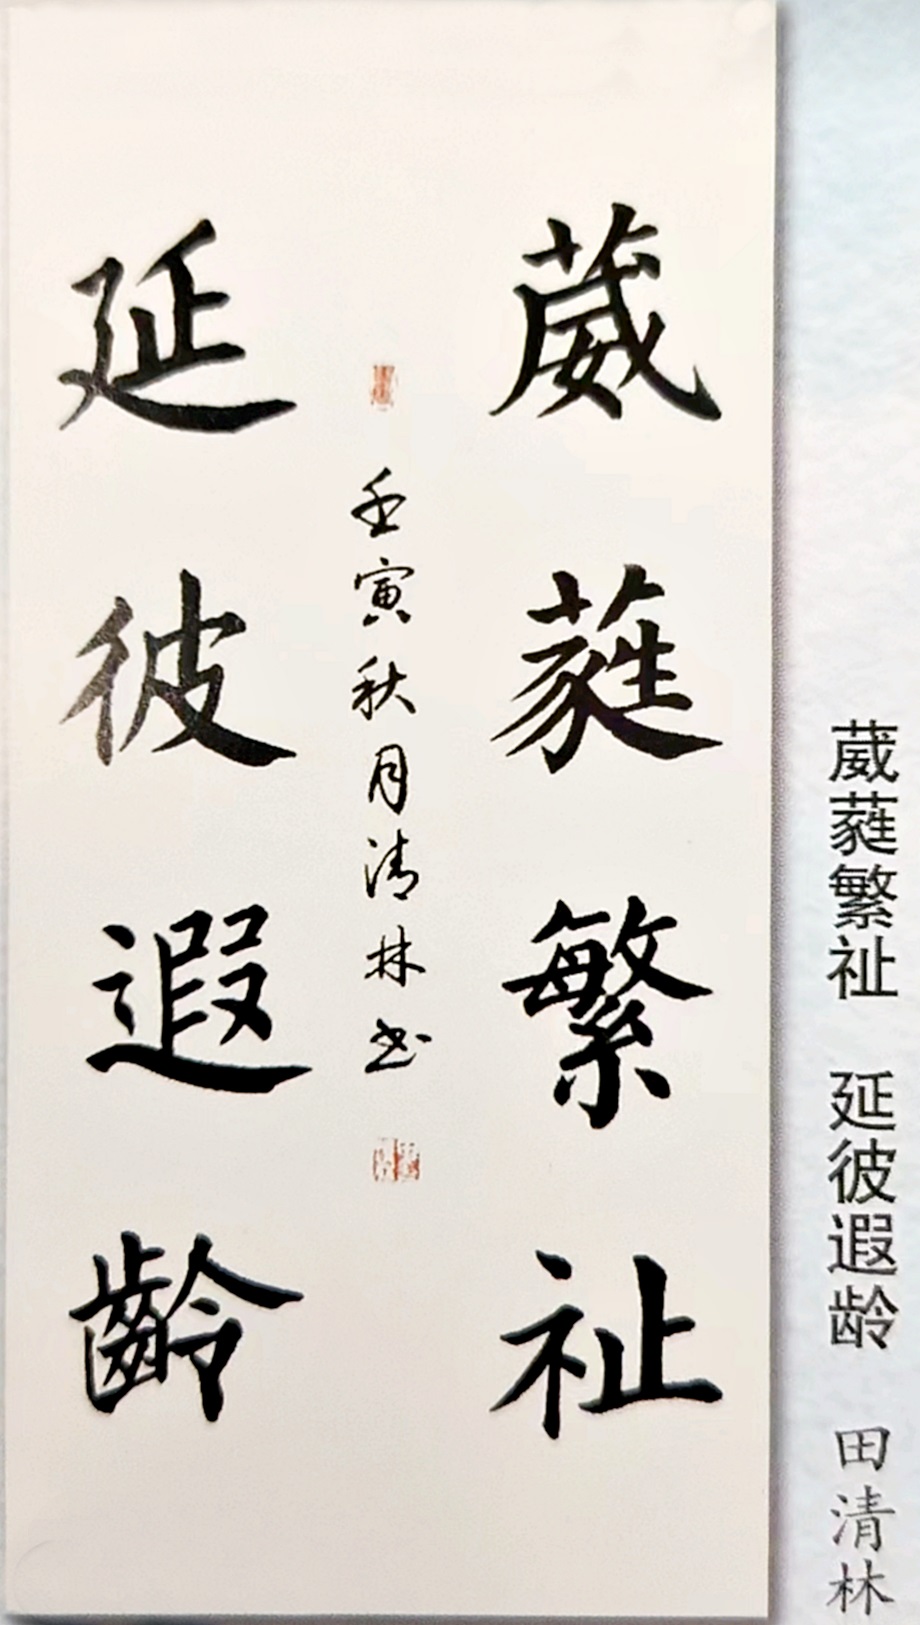 葳蕤繁祉
延彼遐齡
壬寅秋月清林书
葳蕤繁祉 延彼遐龄 田清林